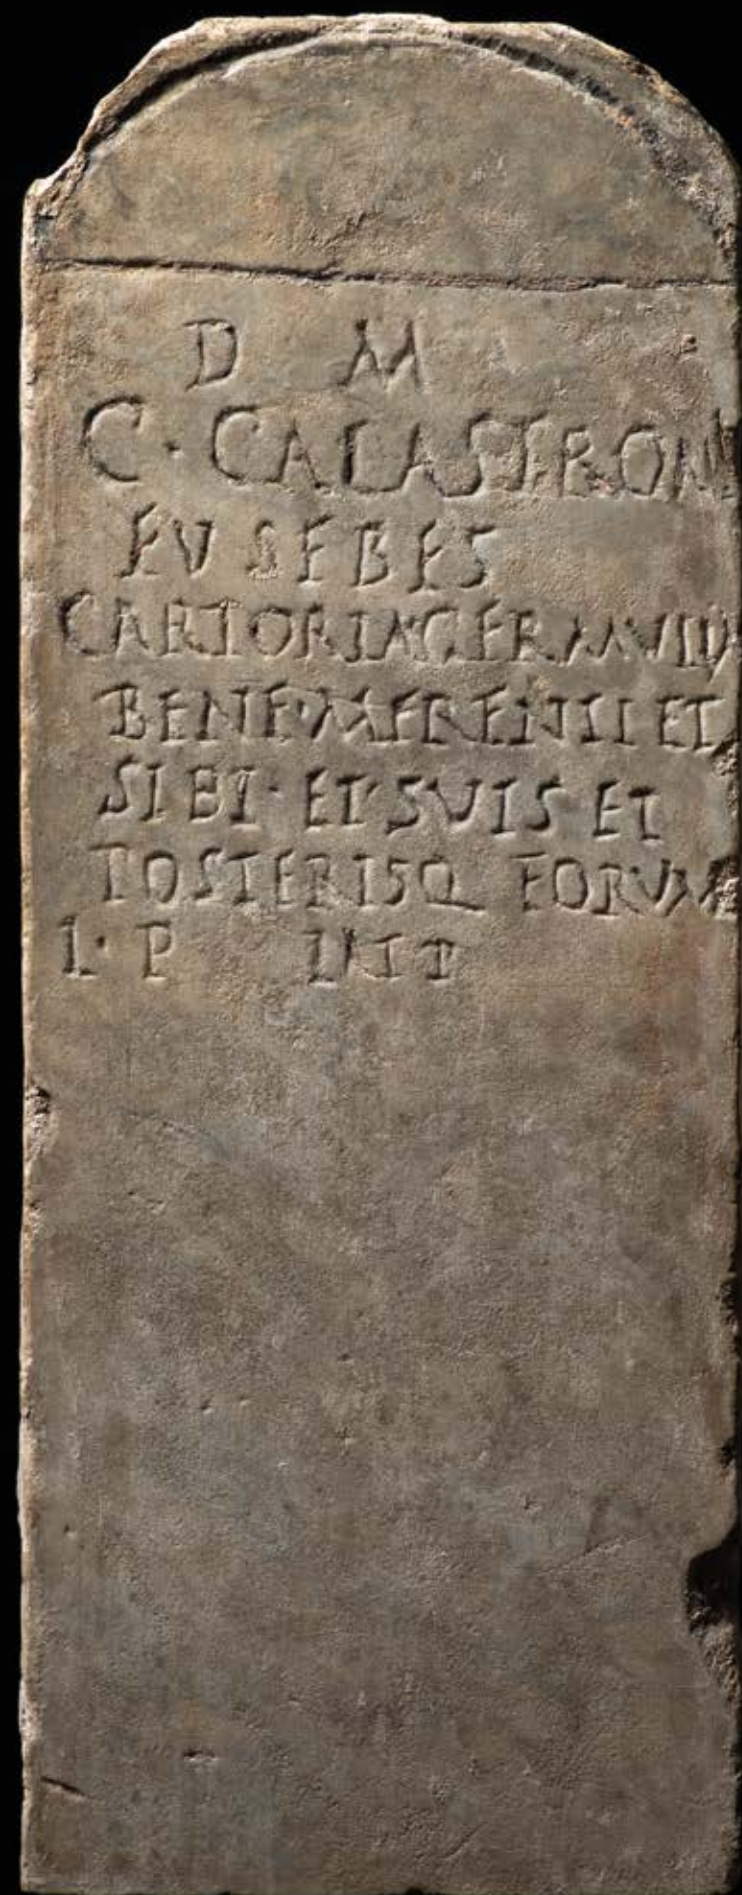 D M
C · CALASTRONI
EVSEBES
SARTORIA · GERMVLLA
BENE · MERENTI ET
SIBI · ET · SVIS ET
POSTERISQ EORVM
L · P